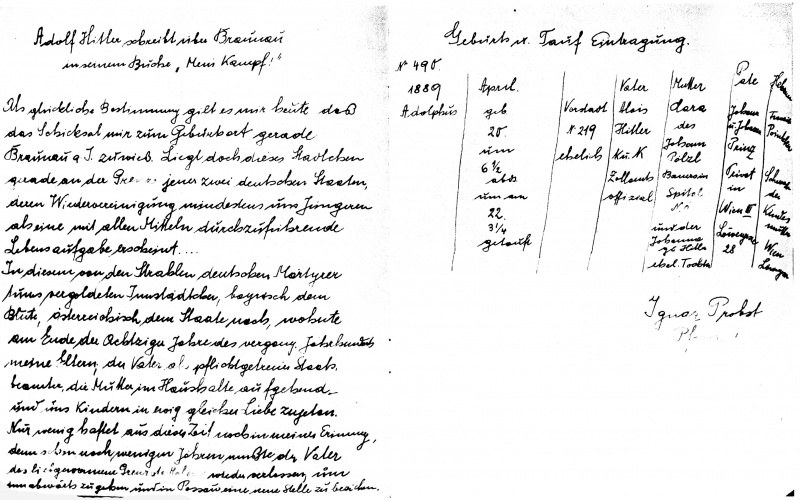 Adolf Hitler schreibt über Braunau
in seinem Buche „Mein Kampf!“
Als glückliche Bestimmung gilt es mir heute daß
das Schicksal mir zum Geburtsort gerade
Braunau a I. zuwies. Liegt doch dieses Städtchen
gerade an der jener zwei deutschen Staaten,
deren Wiedervereinigung mindestens uns Jüngeren
als eine mit allen Mitteln durchzuführende
Lebensaufgabe erscheint....
In diesem von den Strahlen deutschen Märtyrer
tums vergoldeten Innstädtchen, bayrisch dem
Blute, österreichisch dem Staate nach, wohnte
am Ende der Achtziger Jahre des vergang. Jahrhunderts
meine Eltern, der Vater als pflichtgetreuer Staats
beamter, die Mutter im Haushalte aufgehend
und uns Kindern in ewig gleicher Liebe zugetan.
Nur wenig haftet aus dieser Zeit noch in meiner Erinnung,
denn schon nach wenigen Jahren mußte der Vater
das liebgewonnene wieder verlassen, um
innabwärts zu gehen und in Passau eine neue Stelle zu beziehen.
Geburts u. Tauf Eintragung.
No 490.
1889
Adolphus
April.
geb
20.
um
6 1/2
abds
um an
22.
3 1/4
getauft
Vorstadt
N. 219
ehelich
Vater
Alois
Hitler
K u. K
Zollamts
offizial
Mutter
Clara
des
Johann
Pölzl
Bauer in
Spital
N.Ö
und der
Johanna
gb Hitler
ehel. Tochter
Pate
Johann
u Johanna
Prinz
Privat
in
Wien III
Löwengasse
28
Schwester
der
Kindes
mutter
Wien
Ignaz Probst